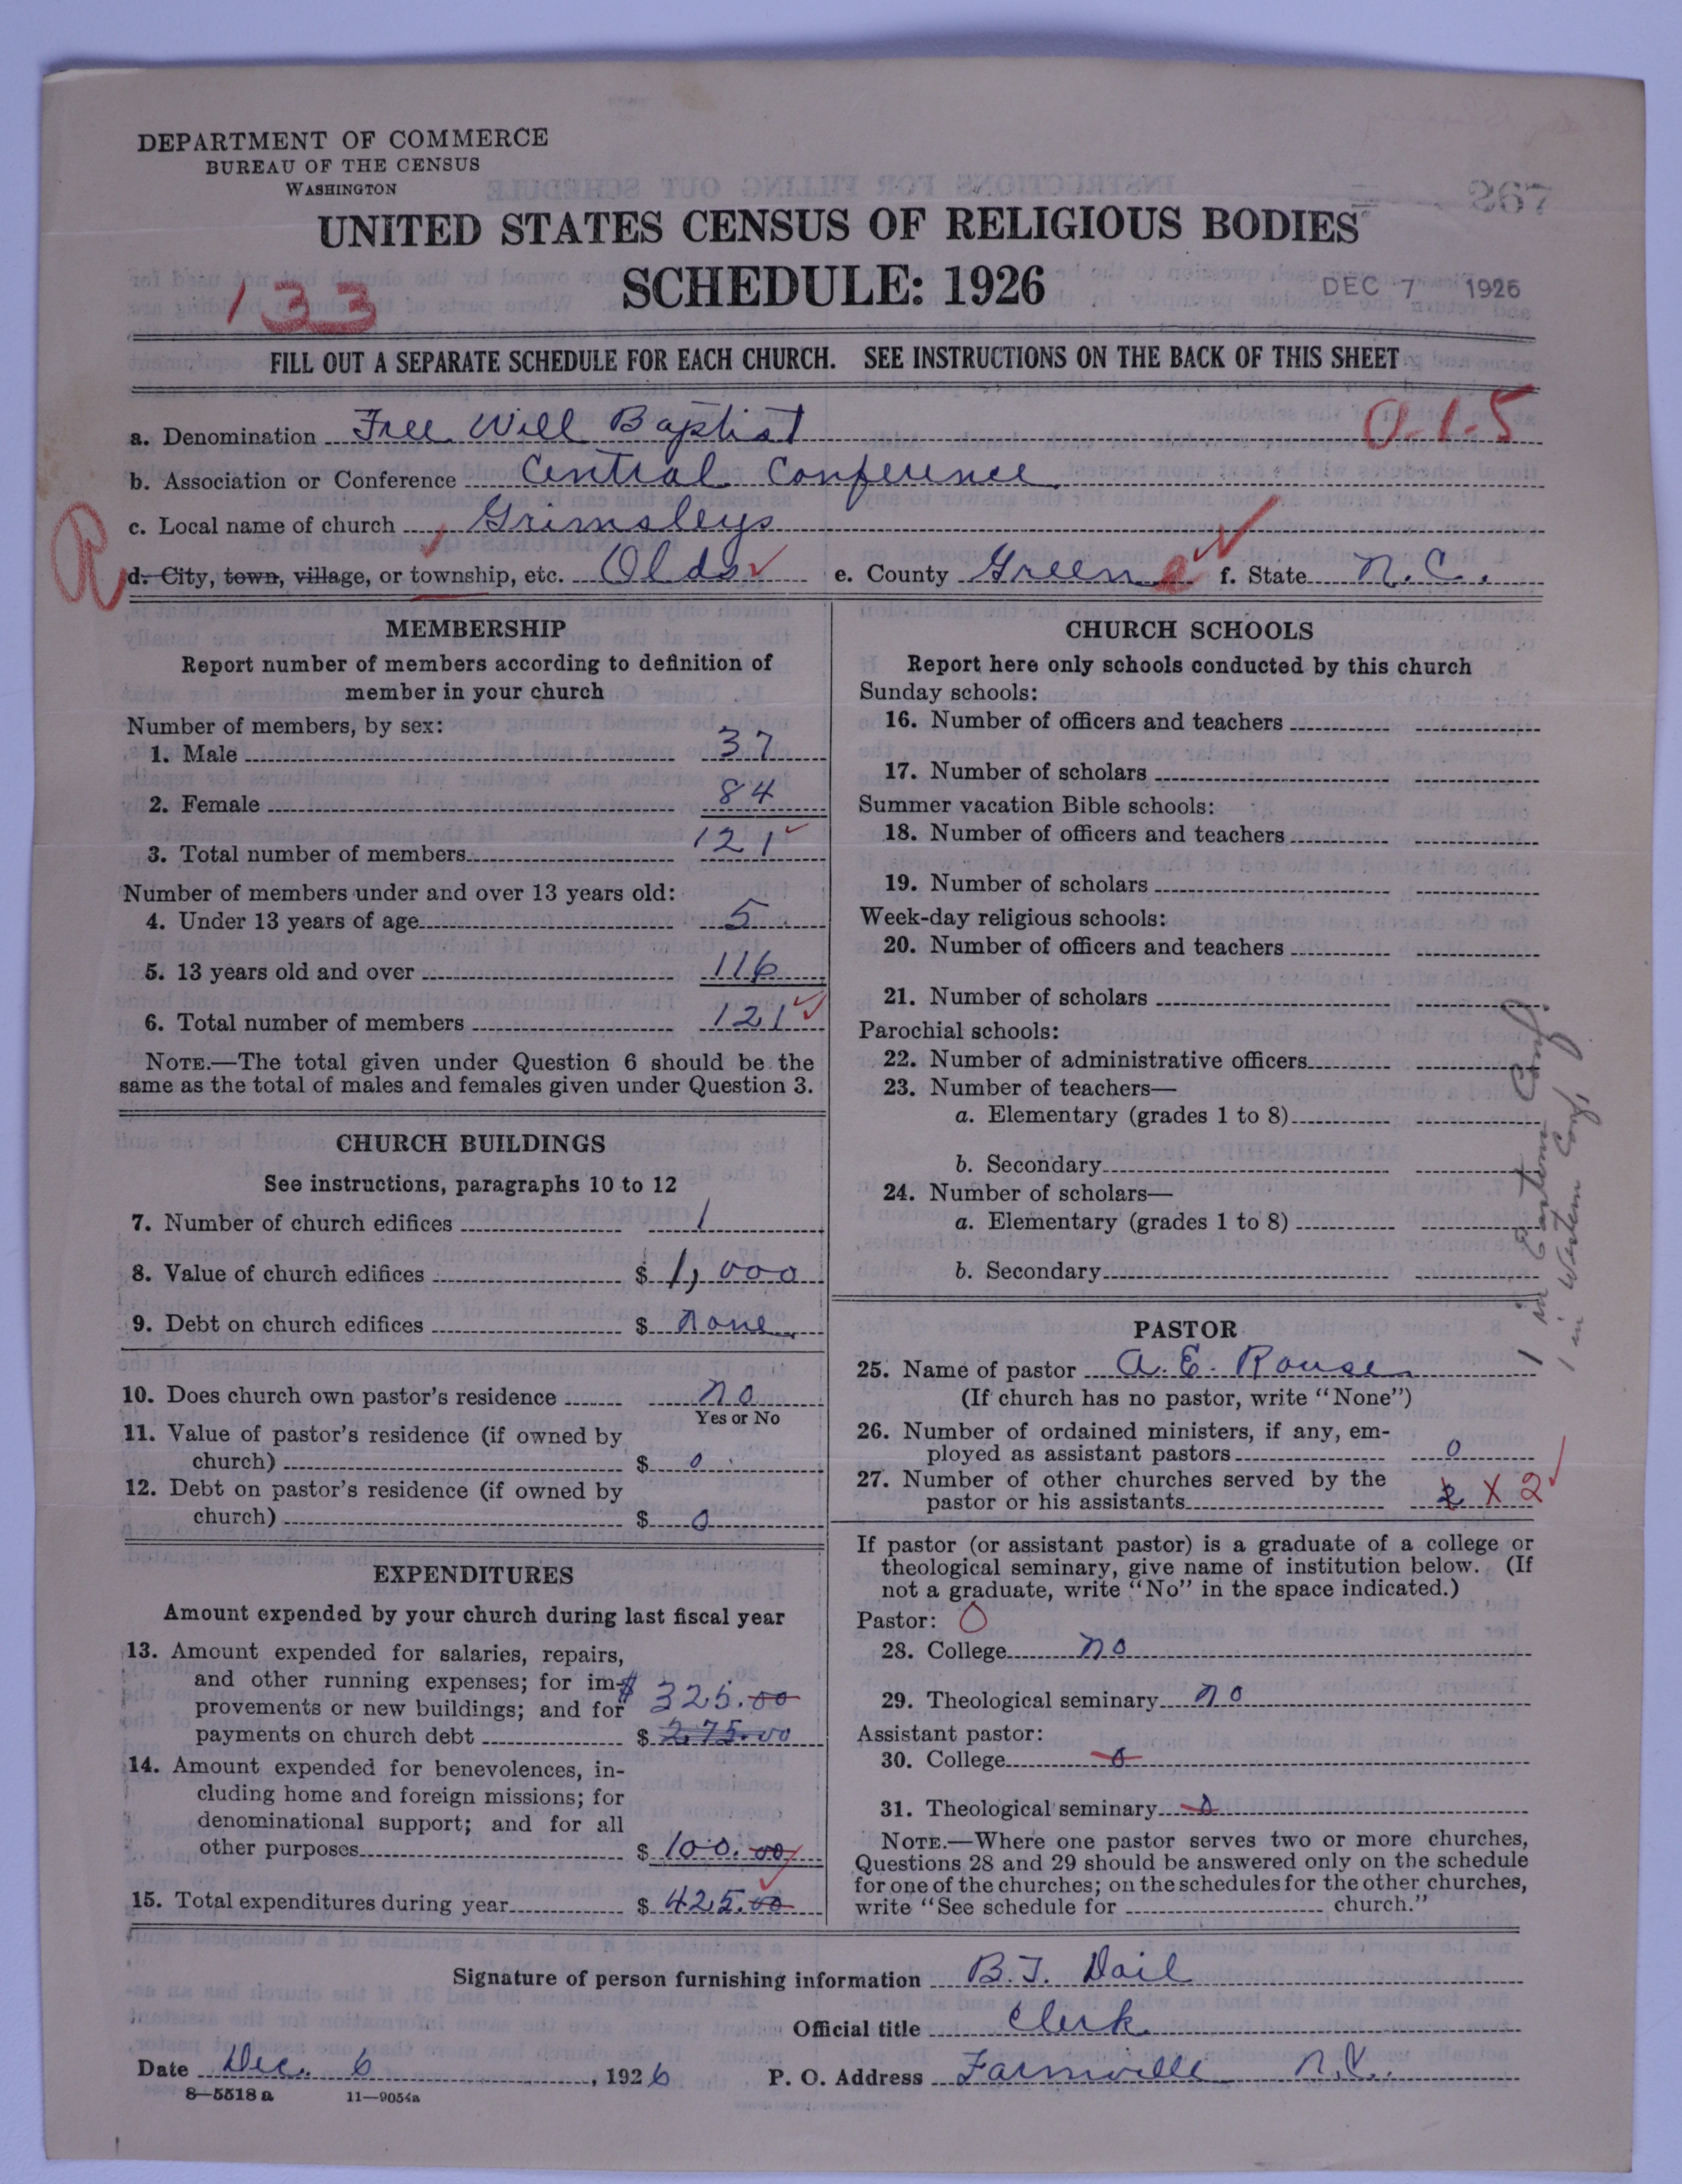 DEPARTMENT OF COMMERCE
BUREAU OF THE CENSUS
WASHINGTON
267
UNITED STATES CENSUS OF RELIGIOUS BODIES
SCHEDULE: 1926
DEC 7 1926
133
FILL OUT A SEPARATE SCHEDULE FOR EACH CHURCH. SEE INSTRUCTIONS ON THE BACK OF THIS SHEET
a. Denomination Free Will Baptist 0-1-5
b. Association or Conference Central Conference
c. Local name of church Grimsleys
R
d. City, town, village, or township, etc. Olds e. County Greene f. State N.C.
MEMBERSHIP
Report number of members according to definition of
member in your church
Number of members, by sex:
1. Male 37
2. Female 84
3. Total number of members 121
Number of members under and over 13 years old:
4. Under 13 years of age 5
5. 13 years old and over 116
6. Total number of members 121
NOTE.—The total given under Question 6 should be the
same as the total of males and females given under Question 3.
CHURCH BUILDINGS
See instructions, paragraphs 10 to 12
7. Number of church edifices 1
8. Value of church edifices $ 1,000
9. Debt on church edifices $ None
10. Does church own pastor's residence No
Yes or No
11. Value of pastor's residence (if owned by
church) $ 0
12. Debt on pastor's residence (if owned by
church) $ 0
EXPENDITURES
Amount expended by your church during last fiscal year
13. Amount expended for salaries, repairs,
and other running expenses; for im-
provements or new buildings; and for $ 325.00
payments on church debt $ 275.00
14. Amount expended for benevolences, in-
cluding home and foreign missions; for
denominational support; and for all
other purposes $ 100.00
15. Total expenditures during year $ 425.00
CHURCH SCHOOLS
Report here only schools conducted by this church
Sunday schools:
16. Number of officers and teachers
17. Number of scholars
Summer vacation Bible schools:
18. Number of officers and teachers
19. Number of scholars
Week-day religious schools:
20. Number of officers and teachers
21. Number of scholars
Parochial schools:
22. Number of administrative officers
23. Number of teachers—
a. Elementary (grades 1 to 8)
b. Secondary
24. Number of scholars—
a. Elementary (grades 1 to 8)
b. Secondary
1 in Eastern Conf.
1 in Western Conf.
PASTOR
25. Name of pastor A. E. Rouse
(If church has no pastor, write "None")
26. Number of ordained ministers, if any, em-
ployed as assistant pastors 0
27. Number of other churches served by the
pastor or his assistants 2 X 2
If pastor (or assistant pastor) is a graduate of a college or
theological seminary, give name of institution below. (If
not a graduate, write "No" in the space indicated.)
Pastor: 0
28. College No
29. Theological seminary No
Assistant pastor:
30. College 0
31. Theological seminary 0
NOTE.—Where one pastor serves two or more churches,
Questions 28 and 29 should be answered only on the schedule
for one of the churches; on the schedules for the other churches,
write "See schedule for church."
Signature of person furnishing information B. T. Dail
Official title Clerk
Date Dec. 6, 1926 P. O. Address Farmville N.C.
8—5518 a 11—9054a